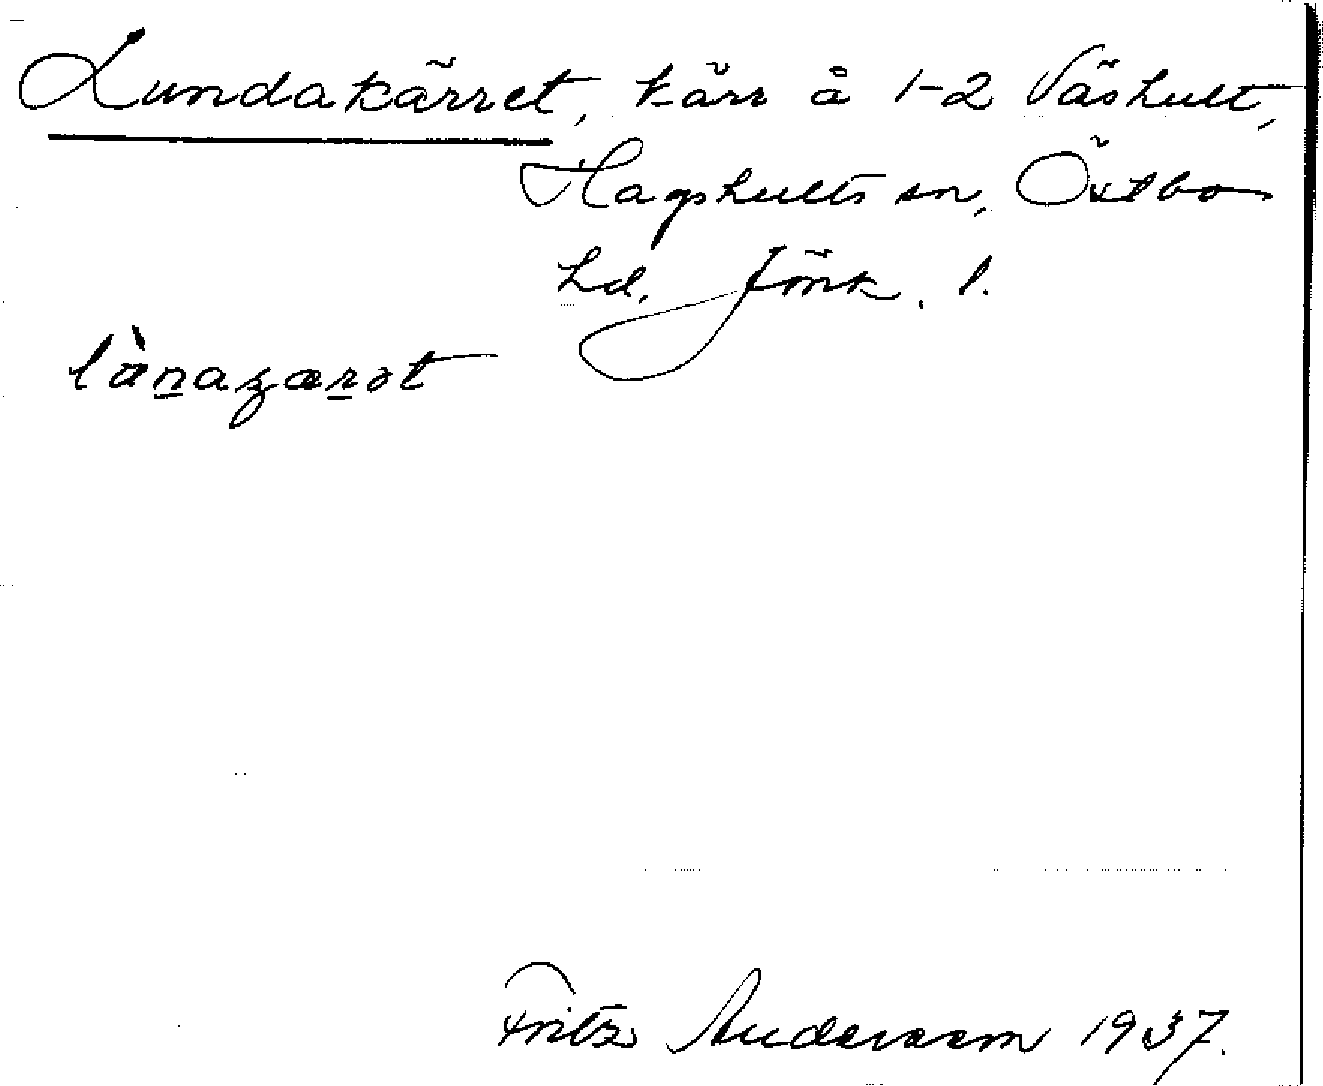 Lundakärret, kärr å 1-2 Väshult,
Hagshults sn, Östbo
hd. Jönk. l.
lànazærət
Fritz Andersson 1937.